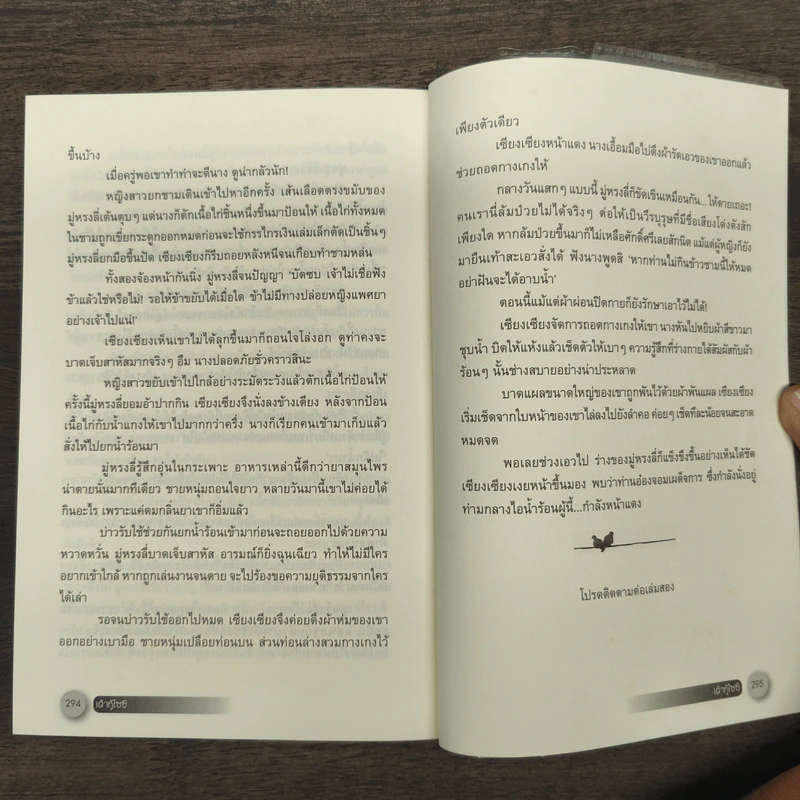 ขึ้นบ้าง
เมื่อครู่พอเขาทำท่าจะตีนาง ดูน่ากลัวนัก!
หญิงสาวยกชามเดินเข้าไปหาอีกครั้ง เส้นเลือดตรงขมับของ
มู่หรงลี่เต้นตุบๆ แต่นางก็ตักเนื้อไก่ชิ้นหนึ่งขึ้นมาป้อนให้ เนื้อไก่ทั้งหมด
ในชามถูกเขี่ยกระดูกออกหมดก่อนจะใช้กรรไกรเงินเล่มเล็กตัดเป็นชิ้นๆ
มู่หรงลี่ยกมือขึ้นปัด เซียงเซียงก็รีบถอยหลังหนีจนเกือบทำชามหล่น
ทั้งสองจ้องหน้ากันนิ่ง มู่หรงลี่จนปัญญา 'บัดซบ เจ้าไม่เชื่อฟัง
ข้าแล้วใช่หรือไม่! รอให้ข้าขยับได้เมื่อใด ข้าไม่มีทางปล่อยหญิงแพศยา
อย่างเจ้าไปแน่!'
เซียงเซียงเห็นเขาไม่ได้ลุกขึ้นมาก็ถอนใจโล่งอก ดูท่าคงจะ
บาดเจ็บสาหัสมากจริงๆ อืม นางปลอดภัยชั่วคราวสินะ
หญิงสาวขยับเข้าไปใกล้อย่างระมัดระวังแล้วตักเนื้อไก่ป้อนให้
ครั้งนี้มู่หรงลี่ยอมอ้าปากกิน เซียงเซียงจึงนั่งลงข้างเตียง หลังจากป้อน
เนื้อไก่กับน้ำแกงให้เขาไปมากกว่าครึ่ง นางก็เรียกคนเข้ามาเก็บแล้ว
สั่งให้ไปยกน้ำร้อนมา
มู่หรงลี่รู้สึกอุ่นในกระเพาะ อาหารเหล่านี้ดีกว่ายาสมุนไพร
น่าตายนั่นมากทีเดียว ชายหนุ่มถอนใจยาว หลายวันมานี้เขาไม่ค่อยได้
กินอะไร เพราะแค่ดมกลิ่นยาเขาก็อิ่มแล้ว
บ่าวรับใช้ช่วยกันยกน้ำร้อนเข้ามาก่อนจะถอยออกไปด้วยความ
หวาดหวั่น มู่หรงลี่บาดเจ็บสาหัส อารมณ์ก็ยิ่งฉุนเฉียว ทำให้ไม่มีใคร
อยากเข้าใกล้ หากถูกเล่นงานจนตาย จะไปร้องขอความยุติธรรมจากใคร
ได้เล่า
รอจนบ่าวรับใช้ออกไปหมด เซียงเซียงจึงค่อยดึงผ้าห่มของเขา
ออกอย่างเบามือ ชายหนุ่มเปลือยท่อนบน ส่วนท่อนล่างสวมกางเกงไว้
294 เต้ากู่ไซซี
เพียงตัวเดียว
เซียงเซียงหน้าแดง นางเอื้อมมือไปดึงผ้ารัดเอวของเขาออกแล้ว
ช่วยถอดกางเกงให้
กลางวันแสกๆ แบบนี้ มู่หรงลี่ก็ขัดเขินเหมือนกัน...ให้ตายเถอะ!
คนเรานี่ล้มป่วยไม่ได้จริงๆ ต่อให้เป็นวีรบุรุษที่มีชื่อเสียงโด่งดังสัก
เพียงใด หากล้มป่วยขึ้นมาก็ไม่เหลือศักดิ์ศรีเลยสักนิด แม้แต่ผู้หญิงก็ยัง
มายืนเท้าสะเอวสั่งได้ ฟังนางพูดสิ 'หากท่านไม่กินข้าวชามนี้ให้หมด
อย่าฝันจะได้อาบน้ำ'
ตอนนี้แม้แต่ผ้าผ่อนปิดกายก็ยังรักษาเอาไว้ไม่ได้!
เซียงเซียงจัดการถอดกางเกงให้เขา นางหันไปหยิบผ้าสีขาวมา
ชุบน้ำ บิดให้แห้งแล้วเช็ดตัวให้เบาๆ ความรู้สึกที่ร่างกายได้สัมผัสกับผ้า
ร้อนๆ นั้นช่างสบายอย่างน่าประหลาด
บาดแผลขนาดใหญ่ของเขาถูกพันไว้ด้วยผ้าพันแผล เซียงเซียง
เริ่มเช็ดจากใบหน้าของเขาไล่ลงไปยังลำคอ ค่อยๆ เช็ดทีละน้อยจนสะอาด
หมดจด
พอเลยช่วงเอวไป ร่างของมู่หรงลี่ก็แข็งขึงขึ้นอย่างเห็นได้ชัด
เซียงเซียงเงยหน้าขึ้นมอง พบว่าท่านอ๋องจอมเผด็จการ ซึ่งกำลังนั่งอยู่
ท่ามกลางไอน้ำร้อนผู้นี้...กำลังหน้าแดง
โปรดติดตามต่อเล่มสอง
เต้ากู่ไซซี 295